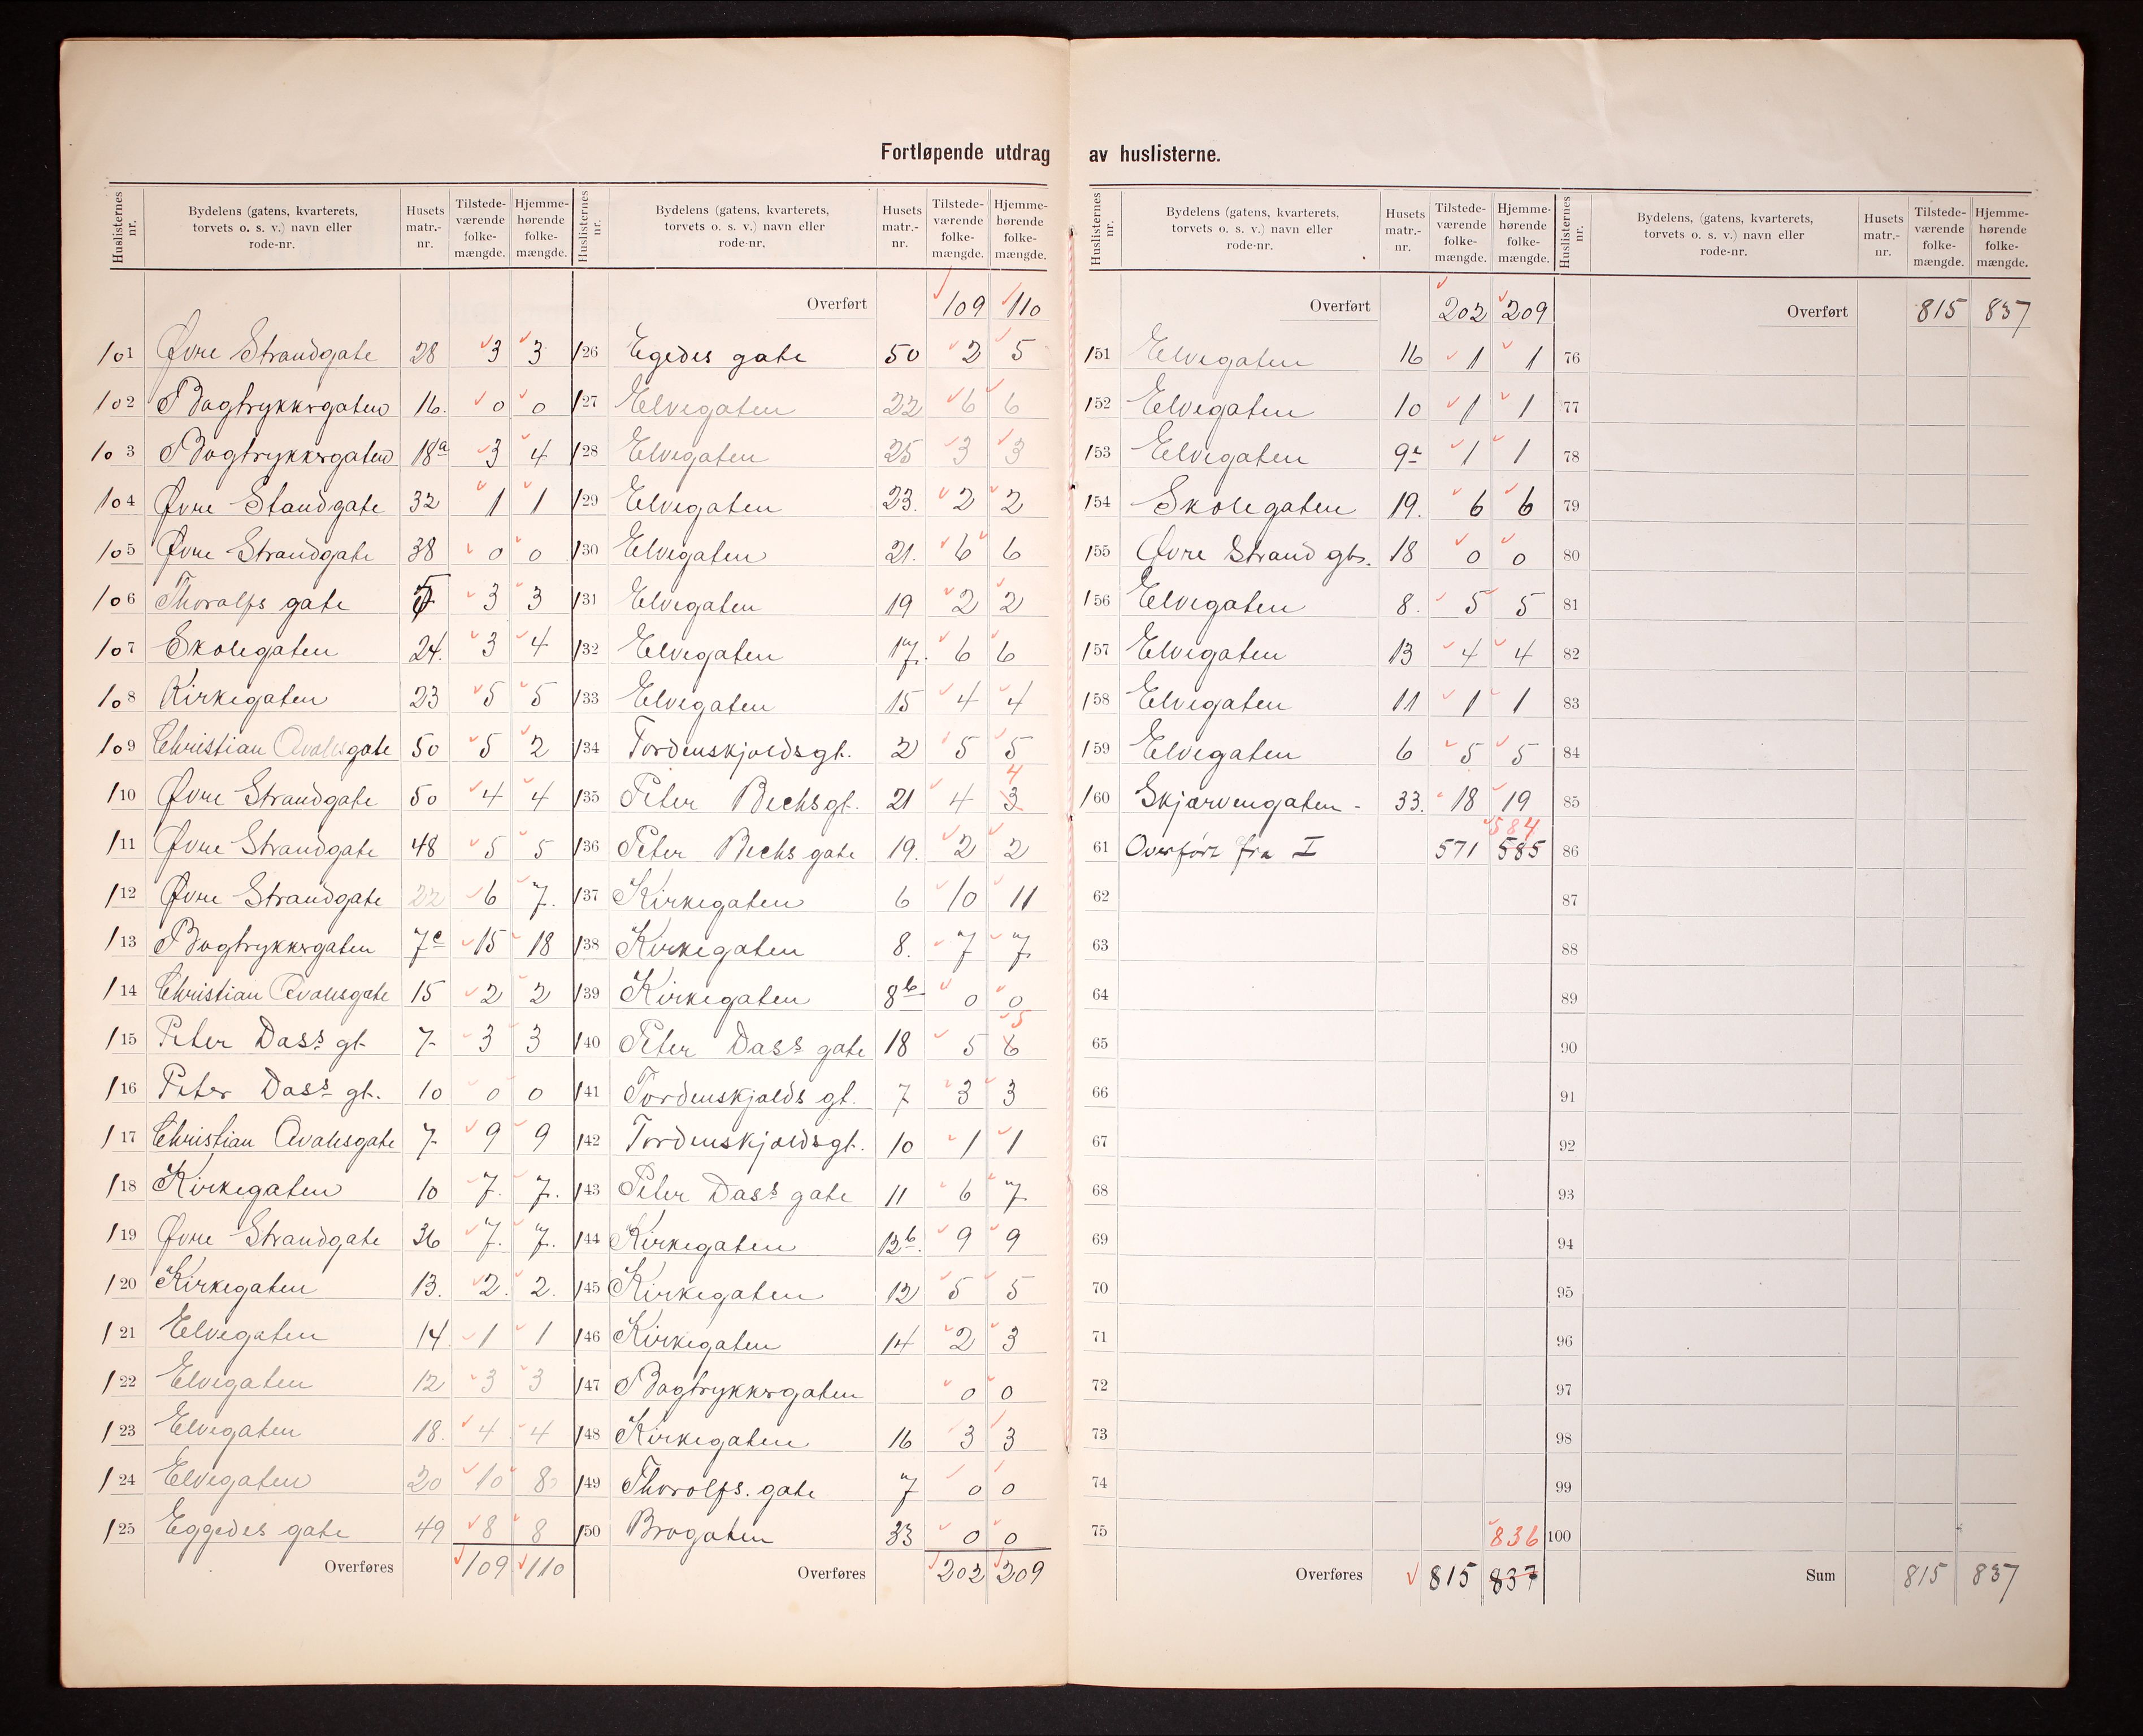 Fortløpende utdrag av huslisterne.
Huslisternes nr. | Bydelens (gatens, kvarterets, torvets o. s. v.) navn eller rode-nr. | Husets matr.-nr. | Tilstede-værende folke-mængde. | Hjemme-hørende folke-mængde.
101 Øvre Strandgate 28 3 3
102 Bogtrykkergaten 16. 0 0
103 Bogtrykkergaten 18a 3 4
104 Øvre Standgate 32 1 1
105 Øvre Strandgate 38 0 0
106 Thoralfs gate 3 3
107 Skolegaten 24. 3 4
108 Kirkegaten 23 5 5
109 Christian Qvalesgate 50 5 2
110 Øvre Strandgate 50 4 4
111 Øvre Strandgate 48 5 5
112 Øvre Strandgate 22 6 7.
113 Bogtrykkergaten 7c 15 18
114 Christian Qvalesgate 15 2 2
115 Peter Dass gt 7 3 3
116 Peter Dass gt. 10 0 0
117 Christian Qvalesgate 7 9 9
118 Kirkegaten 10 7. 7.
119 Øvre Strandgate 36 7. 7.
120 Kirkegaten 13. 2. 2.
121 Elvegaten 14 1 1
122 Elvegaten 12 3 3
123 Elvegaten 18. 4 4
124 Elvegaten 20 10 8
125 Eggedes gate 49 8 8
Overføres 109 110
Huslisternes nr. | Bydelens (gatens, kvarterets, torvets o. s. v.) navn eller rode-nr. | Husets matr.-nr. | Tilstede-værende folke-mængde. | Hjemme-hørende folke-mængde.
Overført 109 110
126 Egedes gate 50 2 5
127 Elvegaten 22 6 6
128 Elvegaten 25 3 3
129 Elvegaten 23. 2 2
130 Elvegaten 21. 6 6
131 Elvegaten 19 2 2
132 Elvegaten 17. 6 6
133 Elvegaten 15 4 4
134 Tordenskjoldsgt. 2 5 5
135 Peter Bechsgt. 21 4 3 4
136 Peter Bechs gate 19. 2 2
137 Kirkegaten 6 10 11
138 Kirkegaten 8. 7 7
139 Kirkegaten 8b 0 0
140 Peter Dass gate 18 5 6 5
141 Tordenskjolds gt. 7 3 3
142 Tordenskjoldsgt. 10 1 1
143 Peter Dass gate 11 6 7
144 Kirkegaten 12b. 9 9
145 Kirkegaten 12 5 5
146 Kirkegaten 14 2 3
147 Bogtrykkergaten 0 0
148 Kirkegaten 16 3 3
149 Thorolfs. gate 7 0 0
150 Brogaten 33 0 0
Overføres 202 209
Huslisternes nr. | Bydelens (gatens, kvarterets, torvets o. s. v.) navn eller rode-nr. | Husets matr.-nr. | Tilstede-værende folke-mængde. | Hjemme-hørende folke-mængde.
Overført 202 209
151 Elvegaten 16 1 1
152 Elvegaten 10 1 1
153 Elvegaten 9 1 1
154 Skolegaten 19. 6 6
155 Øvre Strand gt. 18 0 0
156 Elvegaten 8. 5 5
157 Elvegaten 13 4 4
158 Elvegaten 11 1 1
159 Elvegaten 6 5 5
160 Skjærvengaten - 33. 18 19
584
61 Overført fra I 571 585
62
63
64
65
66
67
68
69
70
71
72
73
74
75 836
Overføres 815 837
Huslisternes nr. | Bydelens, (gatens, kvarterets, torvets o. s. v.) navn eller rode-nr. | Husets matr.-nr. | Tilstede-værende folke-mængde. | Hjemme-hørende folke-mængde.
Overført 815 837
76
77
78
79
80
81
82
83
84
85
86
87
88
89
90
91
92
93
94
95
96
97
98
99
100
Sum 815 837